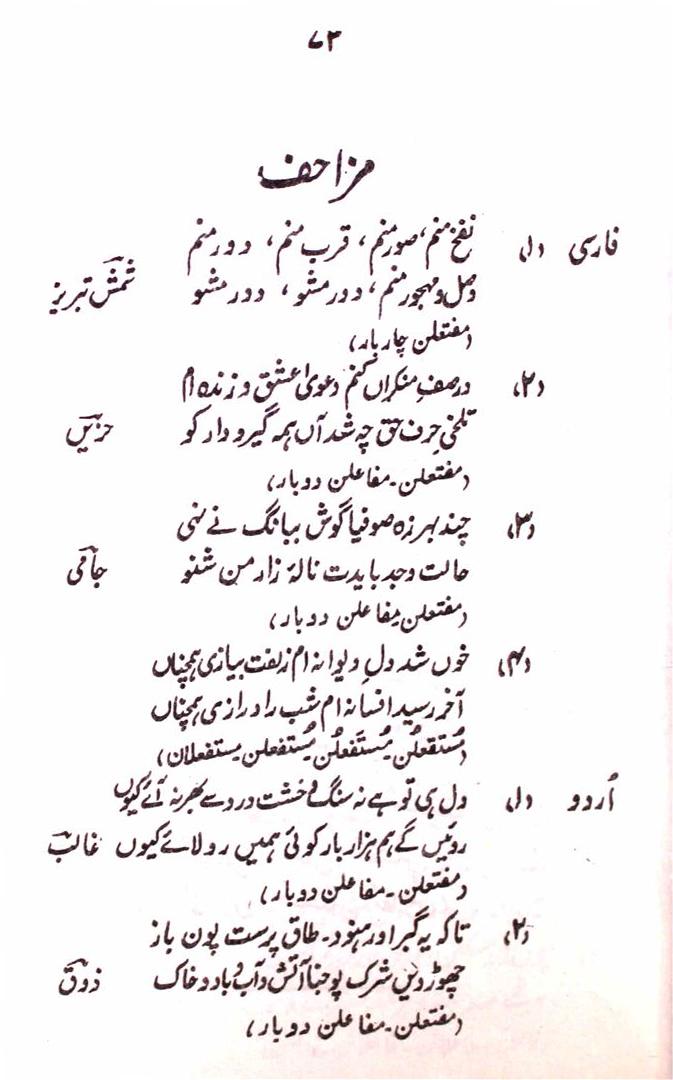 ۷۳
مزاحف
فارسی (۱) نفخ منم، صور منم، قرب منم، دور منم
وصل و مہجور منم، دور مشو، دور مشو شمس تبریز
(مفتعلن چار بار)
(۲) در صفِ منکراں کنم دعویٰ عشق و زندہ ام
تلخیِ حرف حق چہ شد آں ہمہ گیر و دار کو حزیں
(مفتعلن۔ مفاعلن دو بار)
(۳) چند بہرزہ صوفیا گوش ببانگ نے نہی
حالت وجد بایدت نالۂ زار من شنو جامی
(مفتعلن۔مفاعلن دو بار)
(۴) خوں شد دلِ دیوانہ ام زلفت ببازی ہمچناں
آخر رسید افسانہ ام شب را درازی ہمچناں
(مُستَفعلُن۔مُستَفعلُن۔مُستفعلن۔مستفعلان)
اُردو (۱) دل ہی تو ہے نہ سنگ و خشت درد سے بھر نہ آئے کیوں
روئیں گے ہم ہزار بار کوئی ہمیں رولائے کیوں غالب
(مفتعلن۔مفاعلن دو بار)
(۲) تاکہ یہ گبر اور ہنود۔ طاق پرست پون باز
چھوڑ دیں شرک پوجنا آتش و آب و باد و خاک ذوق
(مفتعلن۔مفاعلن دو بار)